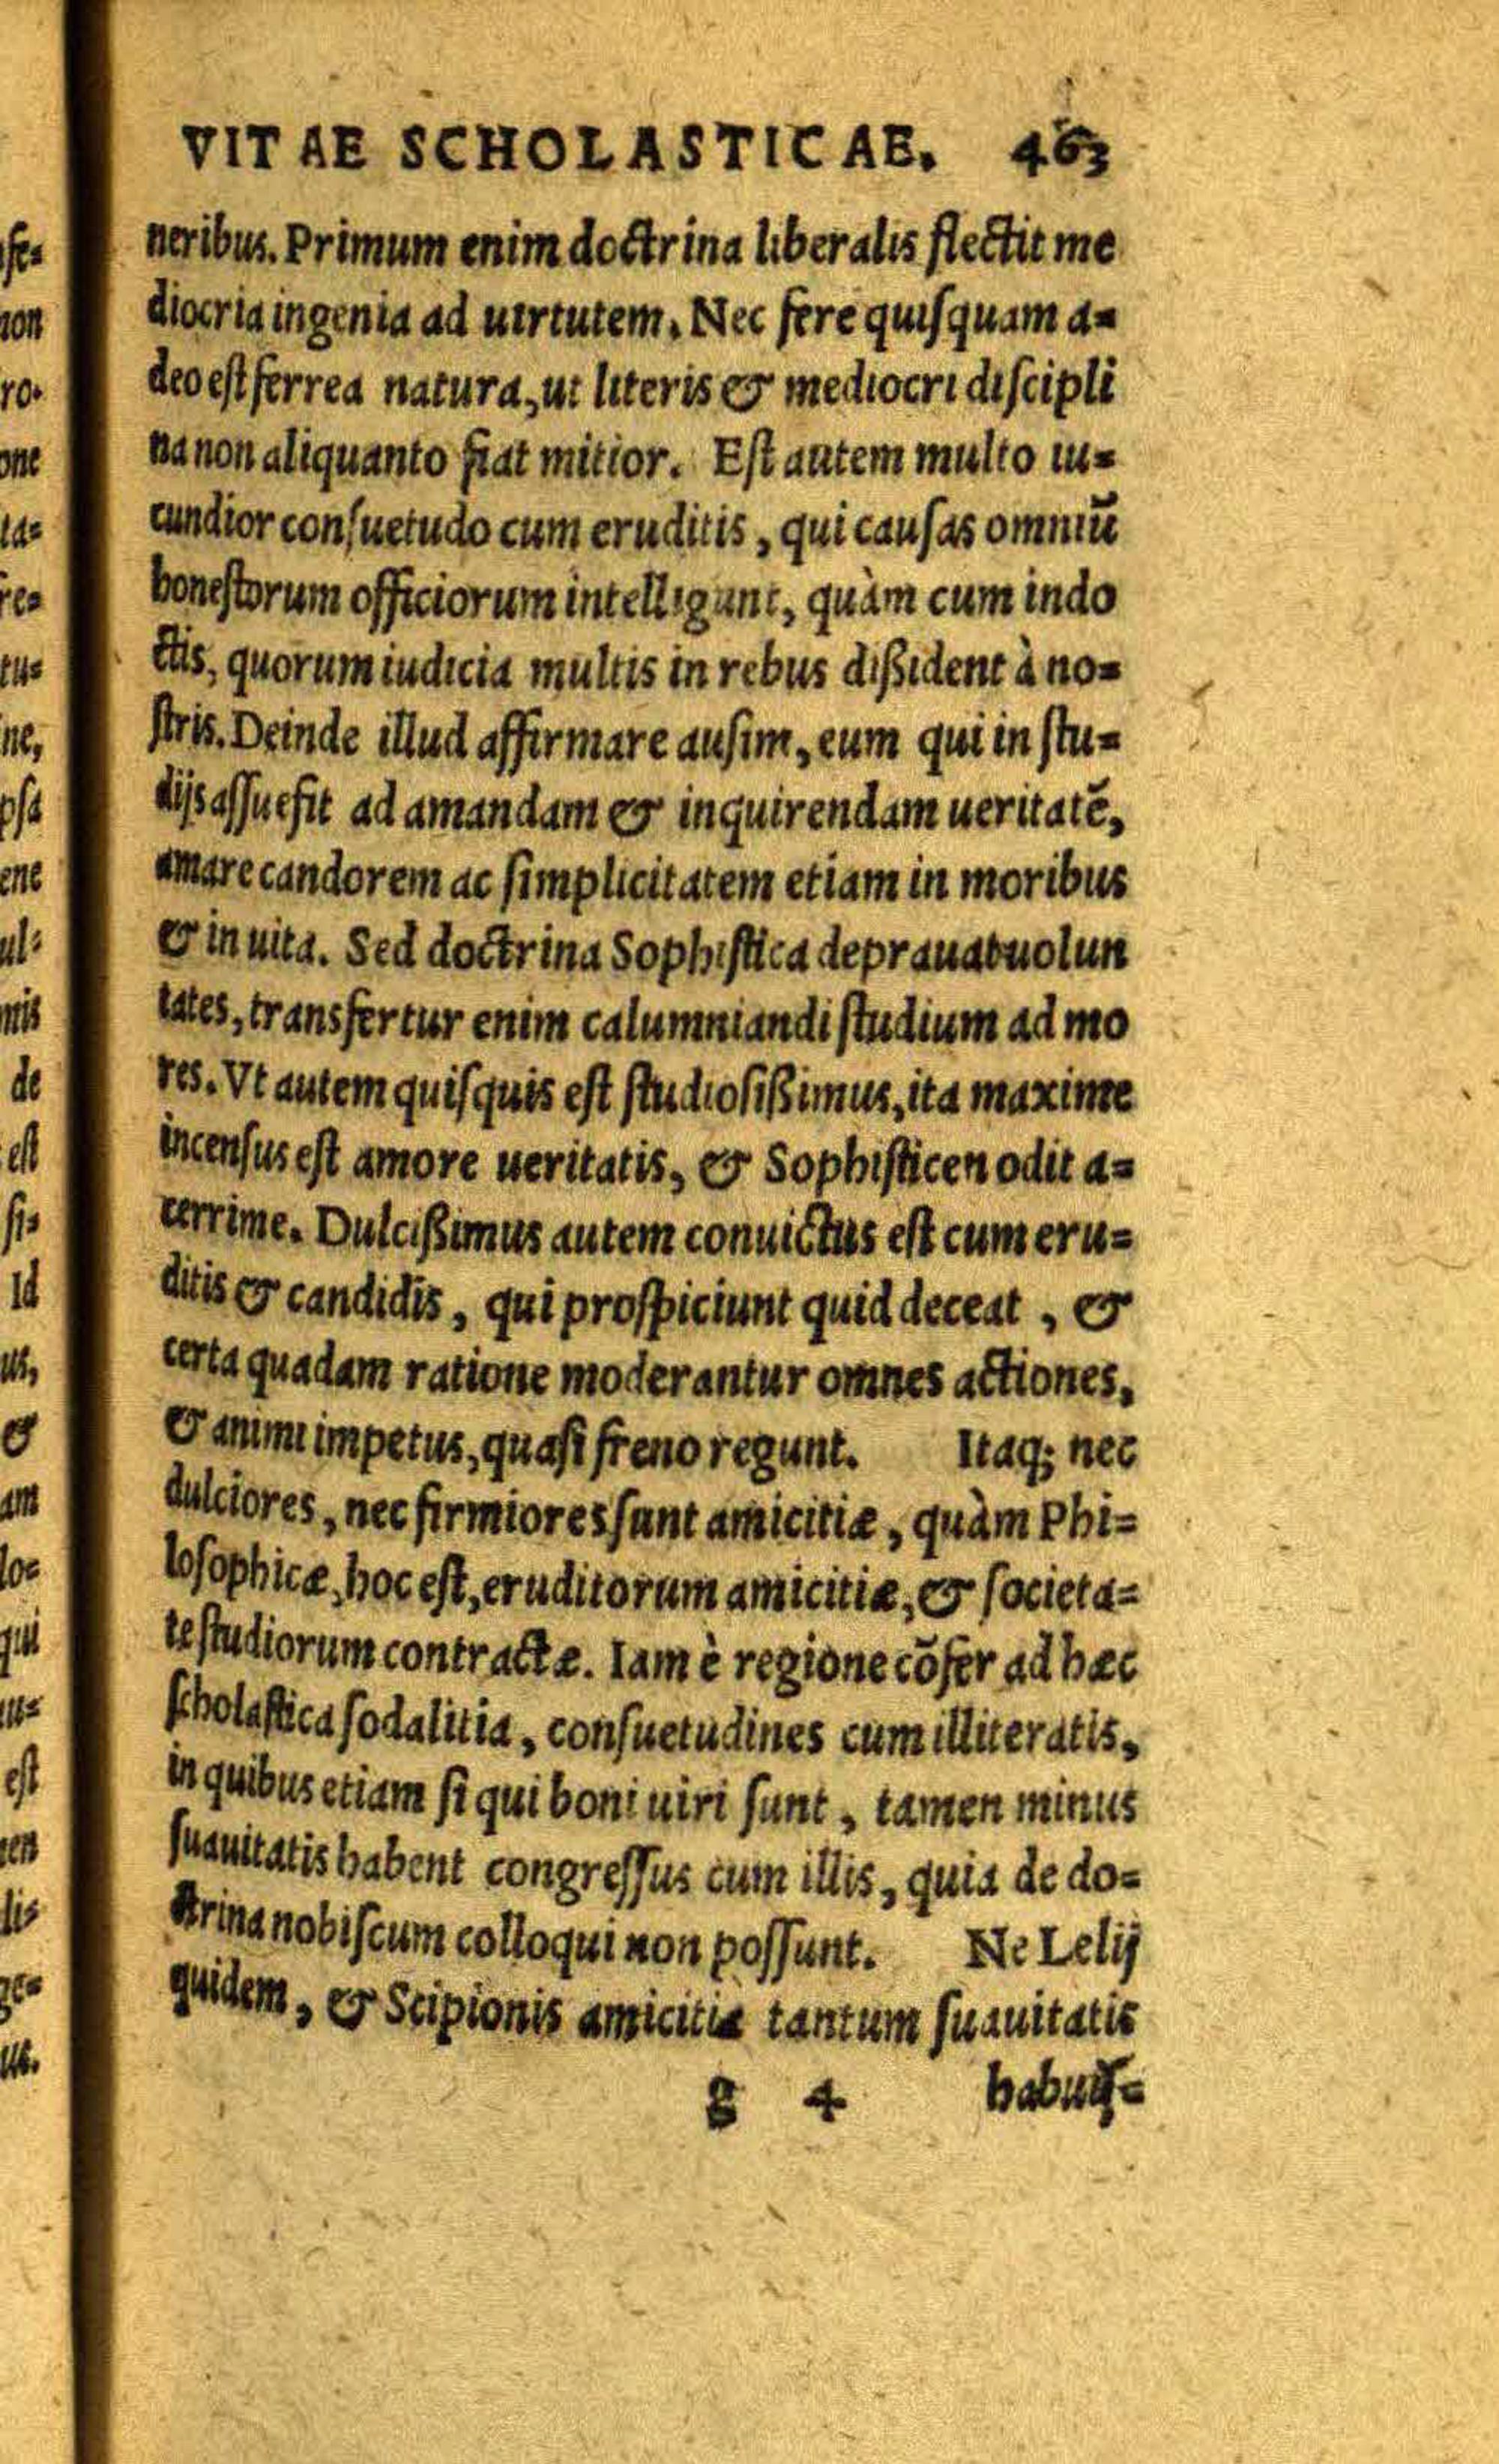 VITAE SCHOLASTICAE. 463
neribus. Primum enim doctrina liberalis flectit me
diocria ingenia ad uirtutem. Nec fere quiſquam a=
deo eſt ferrea natura, ut literis & mediocri diſcipli
na non aliquanto fiat mitior. Eſt autem multo iu=
cundior conſuetudo cum eruditis, qui cauſas omniū
honeſtorum officiorum intelligunt, quàm cum indo
ctis, quorum iudicia multis in rebus dißident à no=
ſtris. Deinde illud affirmare auſim, eum qui in ſtu=
dijs aſſuefit ad amandam & inquirendam ueritatē,
amare candorem ac ſimplicitatem etiam in moribus
& in uita. Sed doctrina Sophiſtica deprauat uolun
tates, transfertur enim calumniandi ſtudium ad mo
res. Vt autem quiſquis eſt ſtudioſißimus, ita maxime
incenſus eſt amore ueritatis, & Sophiſticen odit a=
cerrime. Dulcißimus autem conuictus eſt cum eru=
ditis & candidis, qui proſpiciunt quid deceat, &
certa quadam ratione moderantur omnes actiones,
& animi impetus, quaſi freno regunt. Itaq; nec
dulciores, nec firmiores ſunt amicitiæ, quàm Phi=
loſophicæ, hoc eſt, eruditorum amicitiæ, & ſocieta=
te ſtudiorum contractæ. Iam è regione cōfer ad hæc
ſcholaſtica ſodalitia, conſuetudines cum illiteratis,
in quibus etiam ſi qui boni uiri ſunt, tamen minus
ſuauitatis habent congreſſus cum illis, quia de do=
ctrina nobiſcum colloqui non poſſunt. Ne Lelij
quidem, & Scipionis amicitia tantum ſuauitatis
g 4 habuiſ=